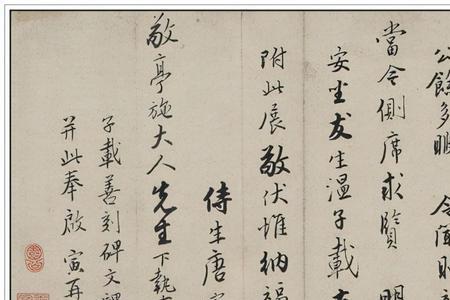 公餘多暇
當今側席求賢 明
安丘友生温子載
附此展敬伏惟納福
侍生唐
敬亭施大人先生下執
子載善刻碑文
并此奉啟 寅再